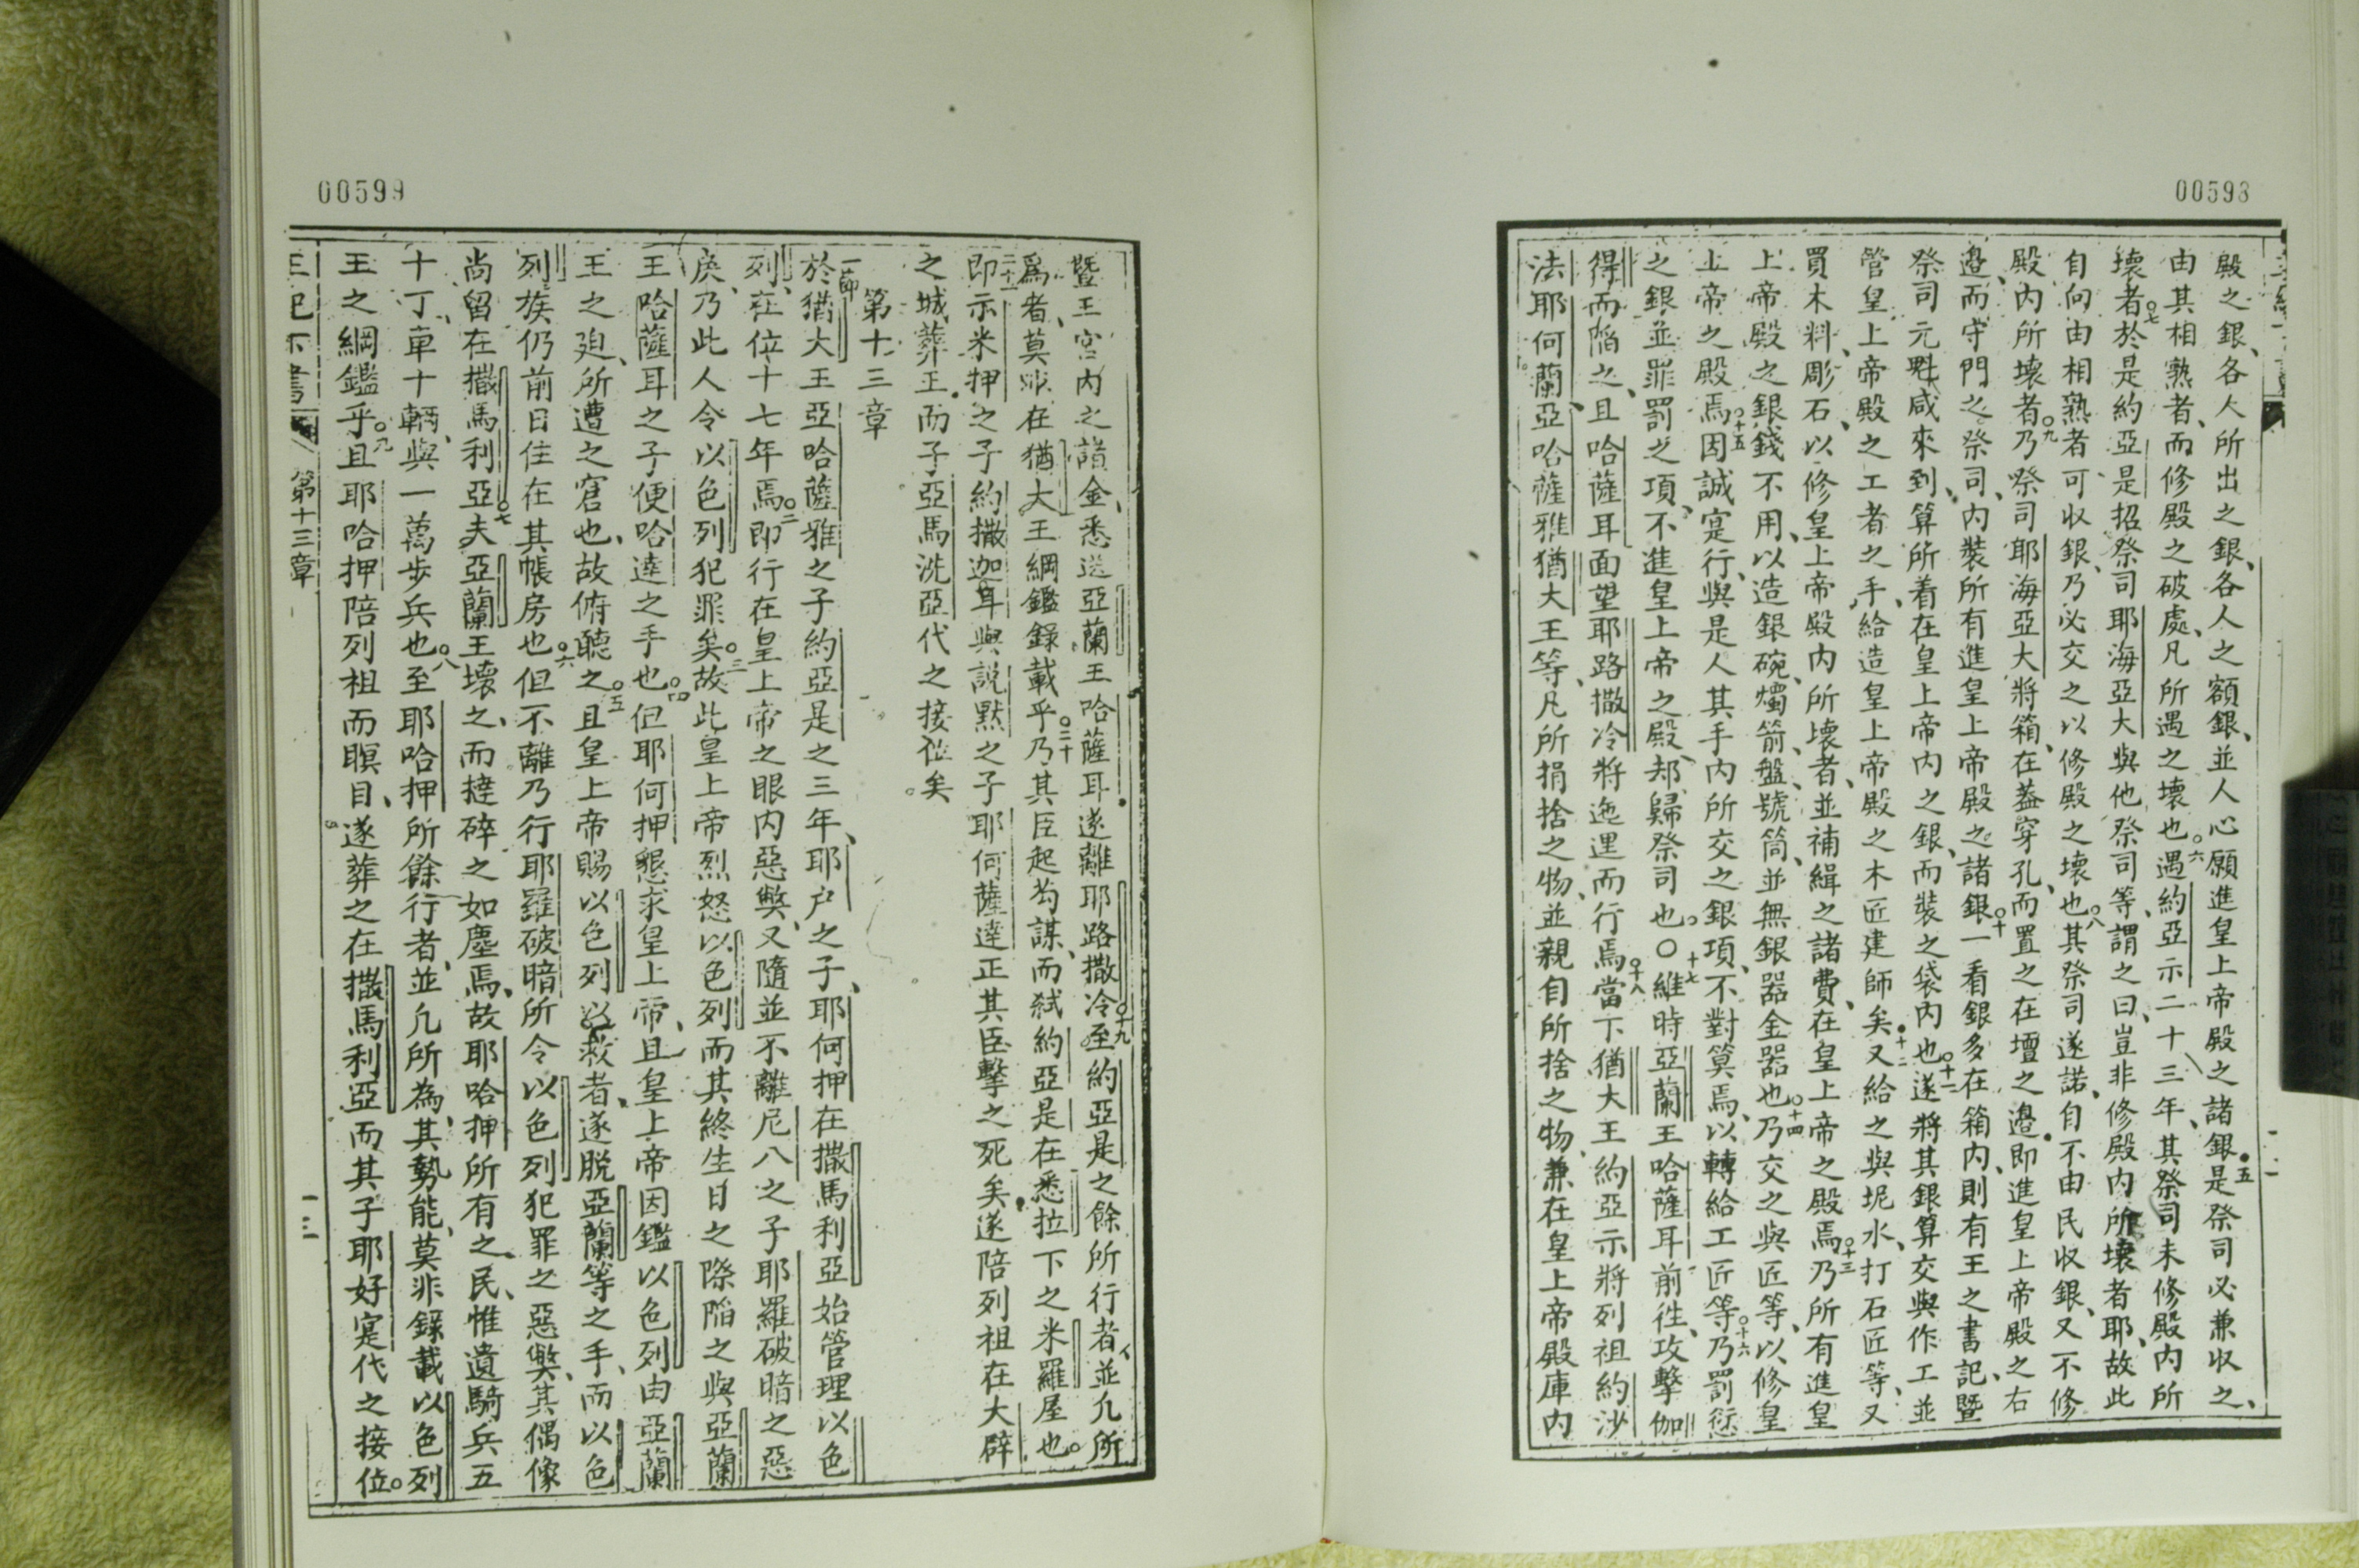 00598
殿之銀各人所出之銀各人之額銀並人心願進皇上帝殿之諸銀○五是祭司必兼收之
由其相熟者而修殿之破處凡所遇之壞也○六遇約亞示二十三年其祭司未修殿內所
壞者○七於是約亞是招祭司耶海亞大與他祭司等謂之曰豈非修殿內所壞者耶故此
自向由相熟者可收銀乃必交之以修殿之壞也○八其祭司遂諾自不由民收銀又不修
殿內所壞者○九乃祭司耶海亞大將箱在蓋穿孔而置之在壇之邊即進皇上帝殿之右
邊而守門之祭司內裝所有進皇上帝殿之諸銀○十一看銀多在箱內則有王之書記暨
祭司元魁咸來到算所着在皇上帝內之銀而裝之袋內也○十一遂將其銀算交與作工並
管皇上帝殿之工者之手給造皇上帝殿之木匠建師矣○十二又給之與坭水打石匠等又
買木料彫石以修皇上帝殿內所壞者並補緝之諸費在皇上帝之殿焉○十三乃所有進皇
上帝殿之銀錢不用以造銀碗燭箭盤號筒並無銀器金器也○十四乃交之與匠等以修皇
上帝之殿焉○十五因誠寔行與是人其手內所交之銀項不對算焉以轉給工匠等○十六乃罰愆
之銀並罪罰之項不進皇上帝之殿却歸祭司也○十七維時亞蘭王哈薩耳前徃攻擊伽
得而陷之且哈薩耳面望耶路撒冷將迤逻而行焉○十八當下猶大王約亞示將列祖約沙
法耶何蘭亞哈薩雅猶大王等凡所捐捨之物並親自所捨之物兼在皇上帝殿庫內
00599
暨王宮內之諸金悉送亞蘭王哈薩耳遂離耶路撒冷○十九至約亞是之餘所行者並凡所
為者莫非在猶大王綱鑑錄載乎○二十乃其臣起芶謀而弒約亞是在悉拉下之米羅屋也
二十一即示米押之子約撒迦耳與説黙之子耶何薩達正其臣擊之死矣遂陪列祖在大辟
之城葬王而子亞馬洗亞代之接位矣
第十三章
一節於猶大王亞哈薩雅之子約亞是之三年耶户之子耶何押在撒馬利亞始管理以色
列在位十七年焉○二即行在皇上帝之眼內惡獘又隨並不離尼八之子耶羅破暗之惡
戾乃此人令以色列犯罪矣○三故此皇上帝烈怒以色列而其終生日之際陷之與亞蘭
王哈薩耳之子便哈達之手也○四但耶何押懇求皇上帝且皇上帝因鑑以色列由亞蘭
王之廹所遭之窘也故俯聽之○五且皇上帝賜以色列以救者遂脱亞蘭等之手而以色
列族仍前日住在其帳房也○六但不離乃行耶羅破暗所令以色列犯罪之惡獘其偶像
尚留在撒馬利亞○七夫亞蘭王壞之而撻碎之如塵焉故耶哈押所有之民惟遺騎兵五
十丁車十輛與一萬步兵也○八至耶哈押所餘行者並凡所為其勢能莫非錄載以色列
王之綱鑑乎○九且耶哈押陪列祖而瞑目遂葬之在撒馬利亞而其子耶好寔代之接位
王紀下書 第十三章 一三